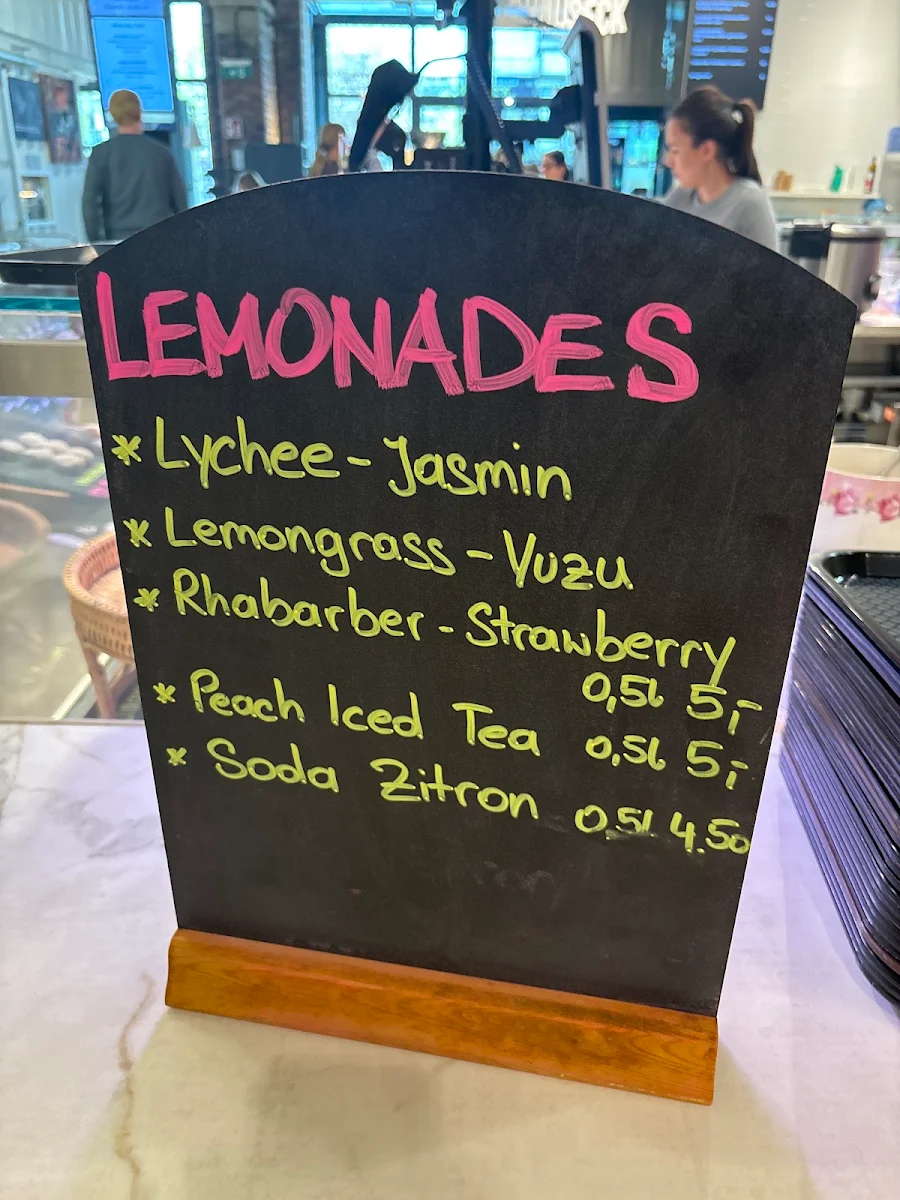 LEMONADES
* Lychee - Jasmin
* Lemongrass - Yuzu
* Rhabarber - Strawberry
0,5l 5,-
* Peach Iced Tea 0,5l 5,-
* Soda Zitron 0,5l 4.50